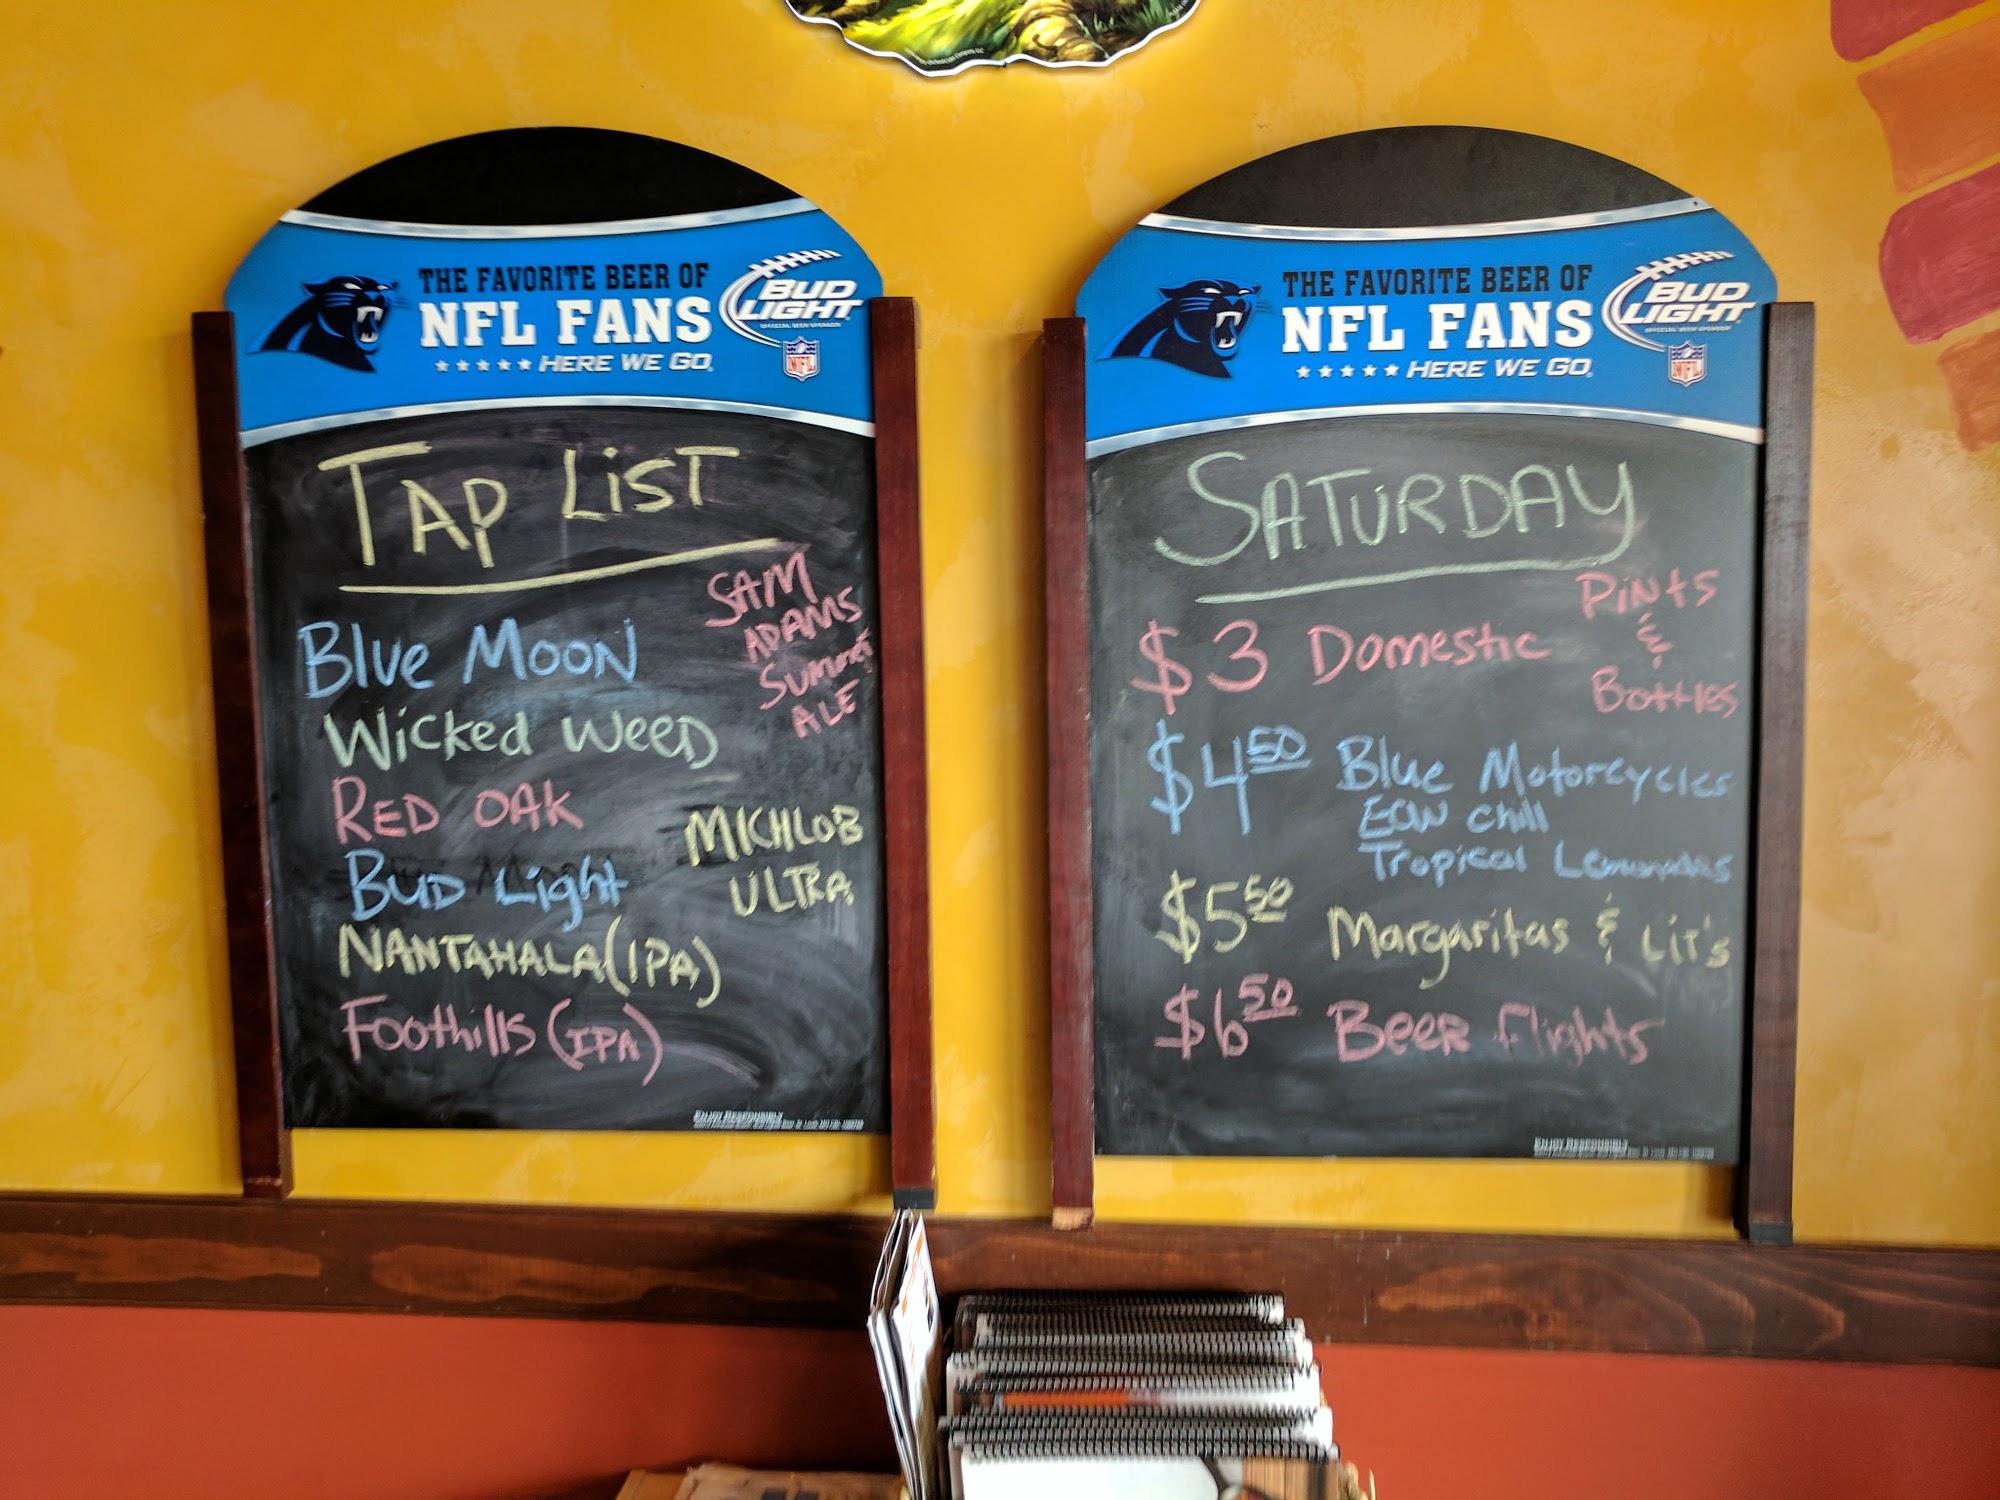 THE FAVORITE BEER OF
NFL FANS
HERE WE GO.
BUD
LIGHT
OFFICIAL BEER SPONSOR
NFL
TAP LIST
SAM
ADAMS
SUMMER
ALE
BLUE MOON
WICKED WEED
RED OAK
MICHLOB
ULTRA
BUD Light
NANTAHALA (IPA)
Foothills (IPA)
ENJOY RESPONSIBLY
THE FAVORITE BEER OF
NFL FANS
HERE WE GO.
BUD
LIGHT
OFFICIAL BEER SPONSOR
NFL
SATURDAY
$3 Domestic
Pints
&
Bottles
$4 50 Blue Motorcycles
ECW Chill
Tropical Lemonades
$5 50 Margaritas & Lit's
$6 50 Beer Flights
ENJOY RESPONSIBLY